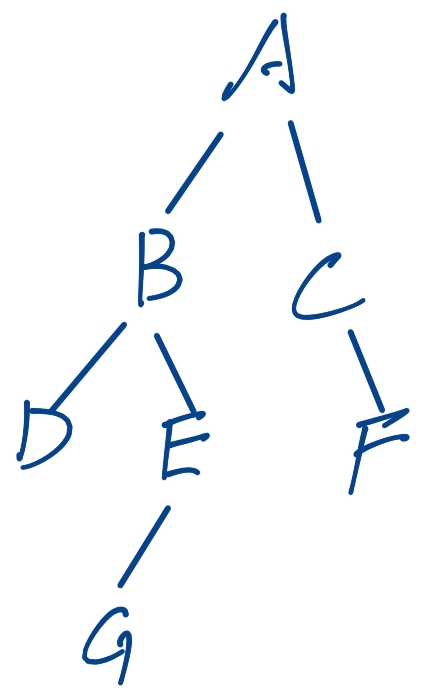 A
B C
D E F
G